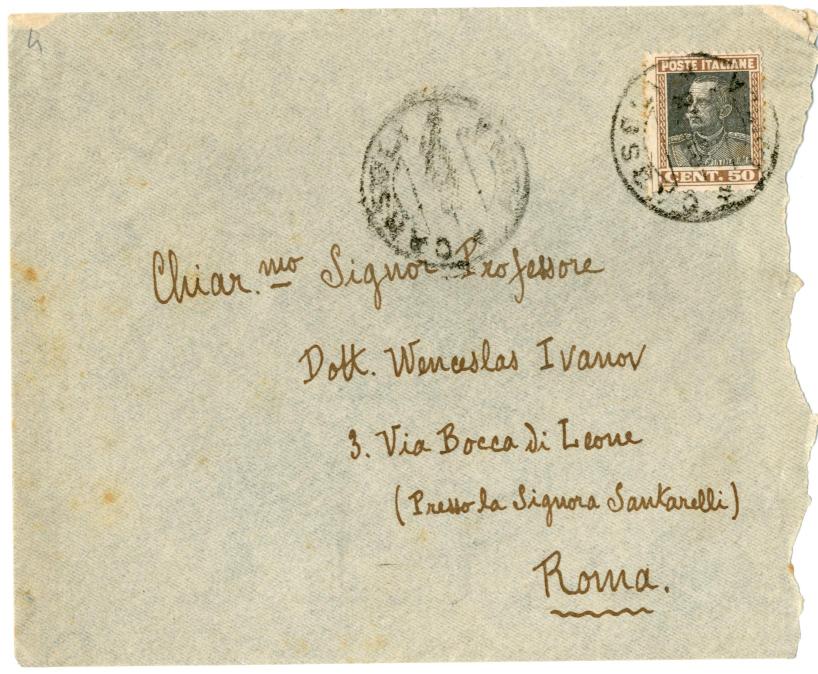 POSTE ITALIANE
CENT. 50
CARSOLI
CARSOLI
Chiar.mo Signor Professore
Dott. Wenceslas Ivanov
3. Via Bocca di Leone
(Presso la Signora Santarelli)
Roma.